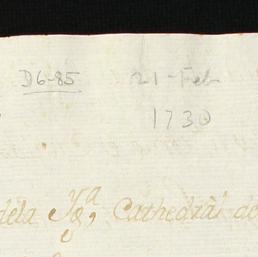 D6-85 21-Feb
1730
dela Ygª, Cathedràl de